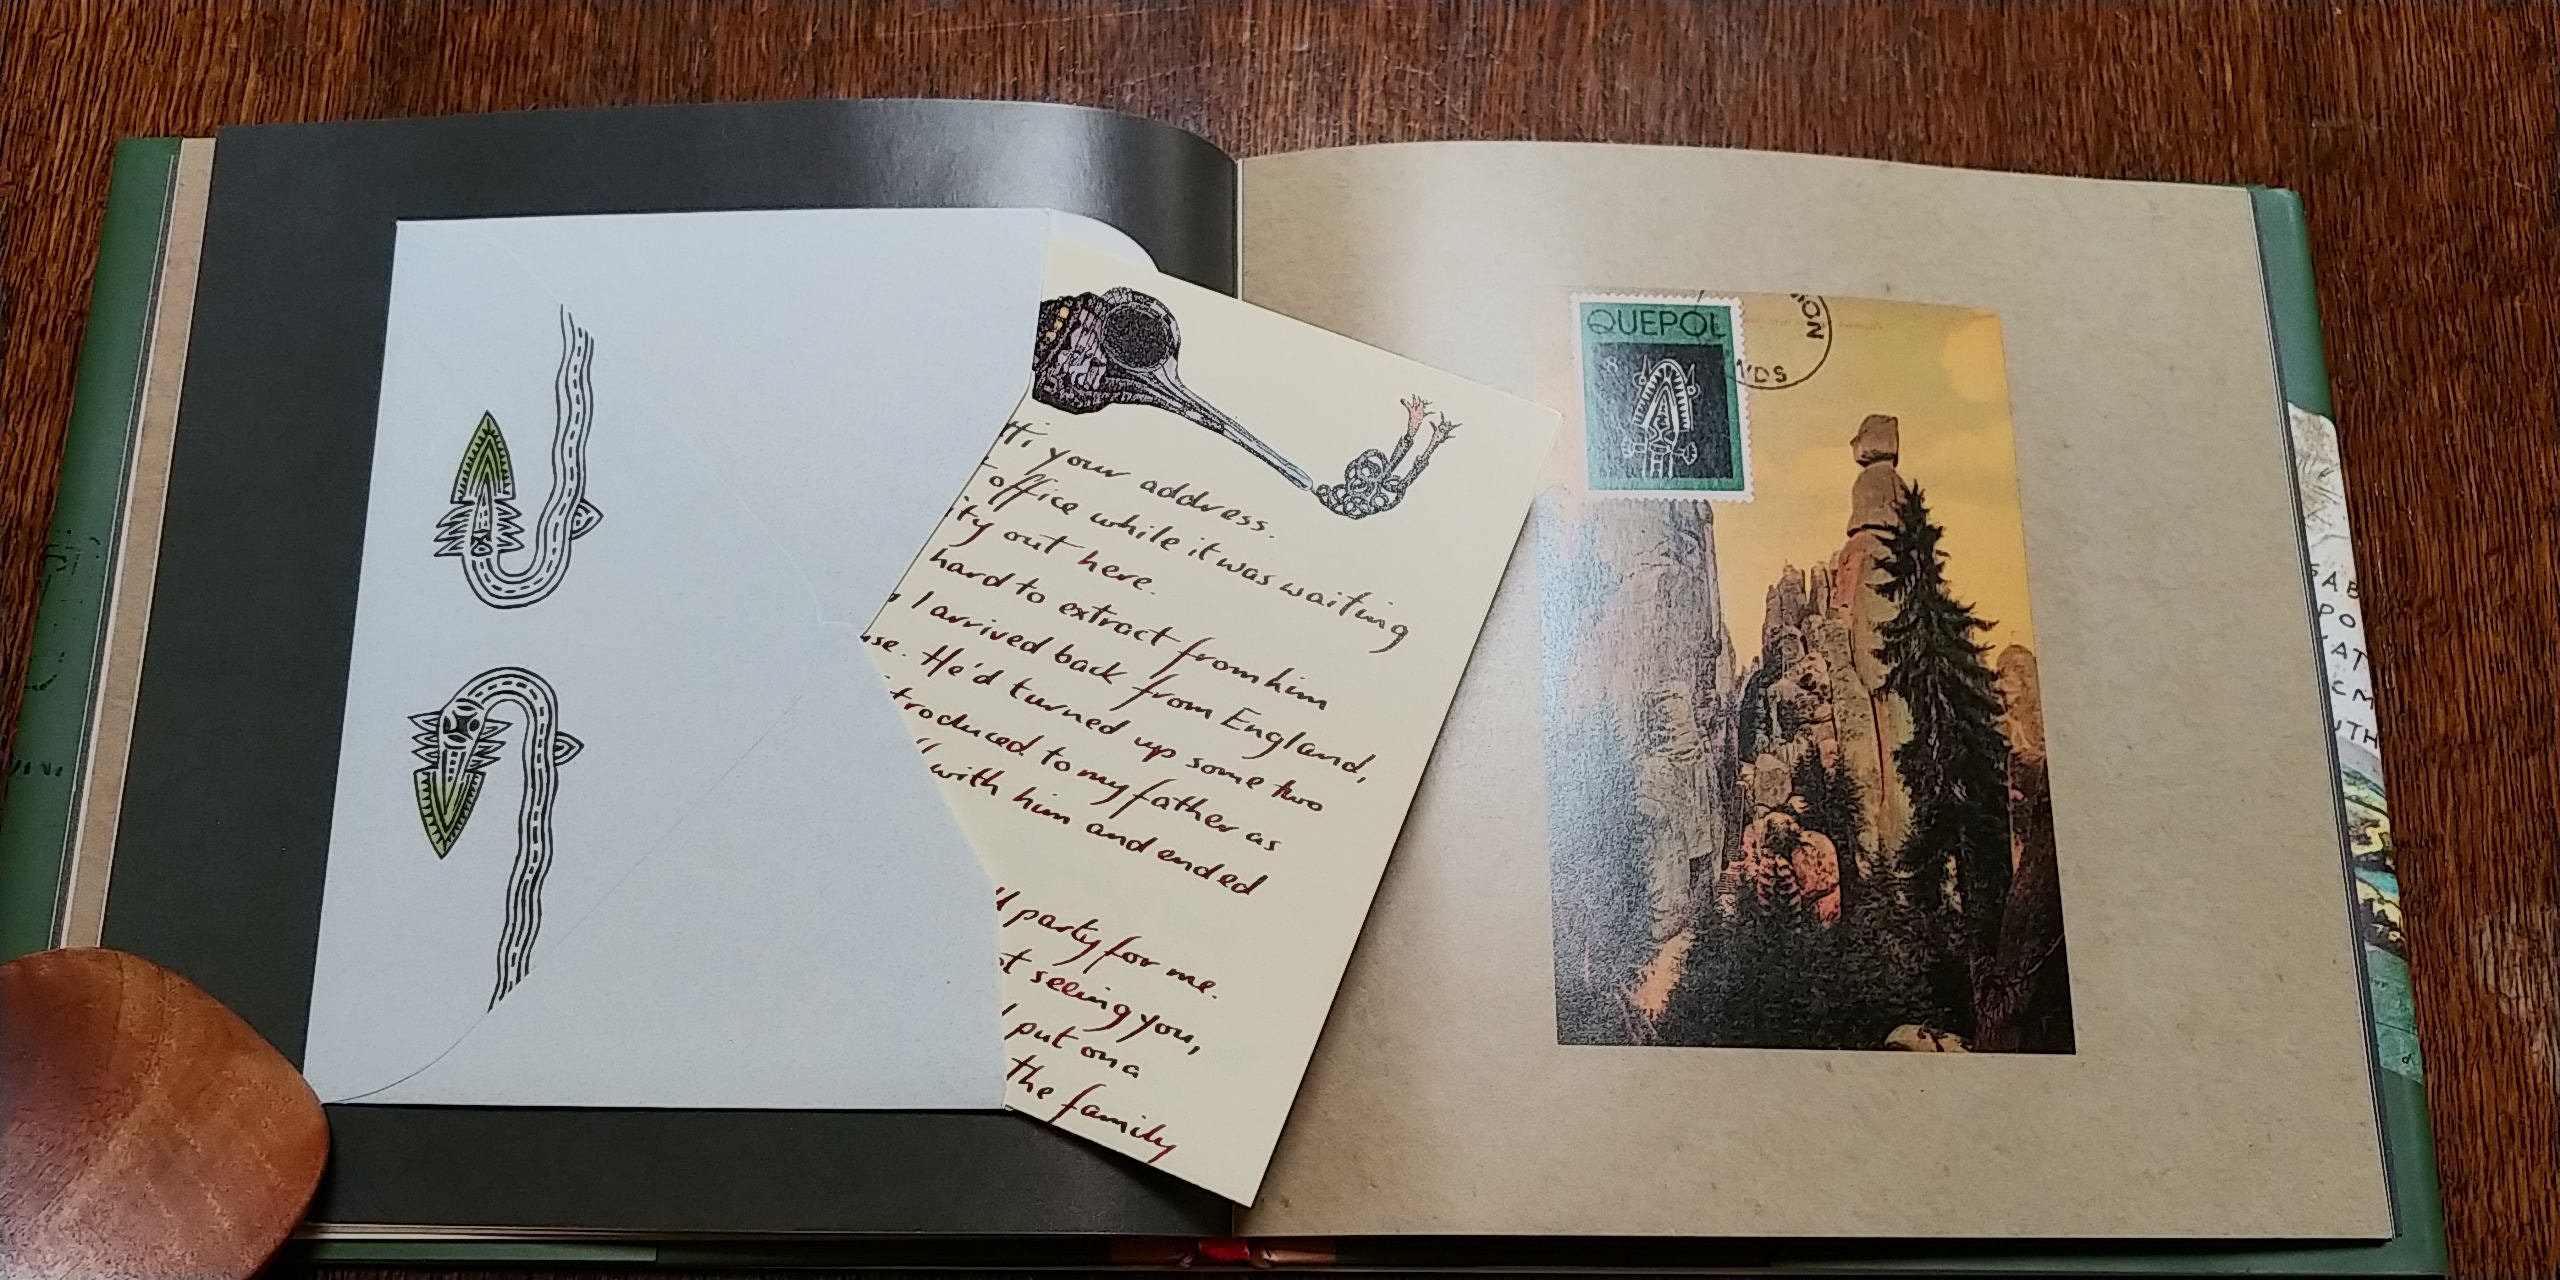 your address.
office while it was waiting
out here.
hard to extract from him
I arrived back from England,
He'd turned up some two
to my father as
with him and ended
party for me.
seeing you,
put on a
the family
QUEPOL
8
NDS
NON
SAB
PO
CAT
CM
UTH